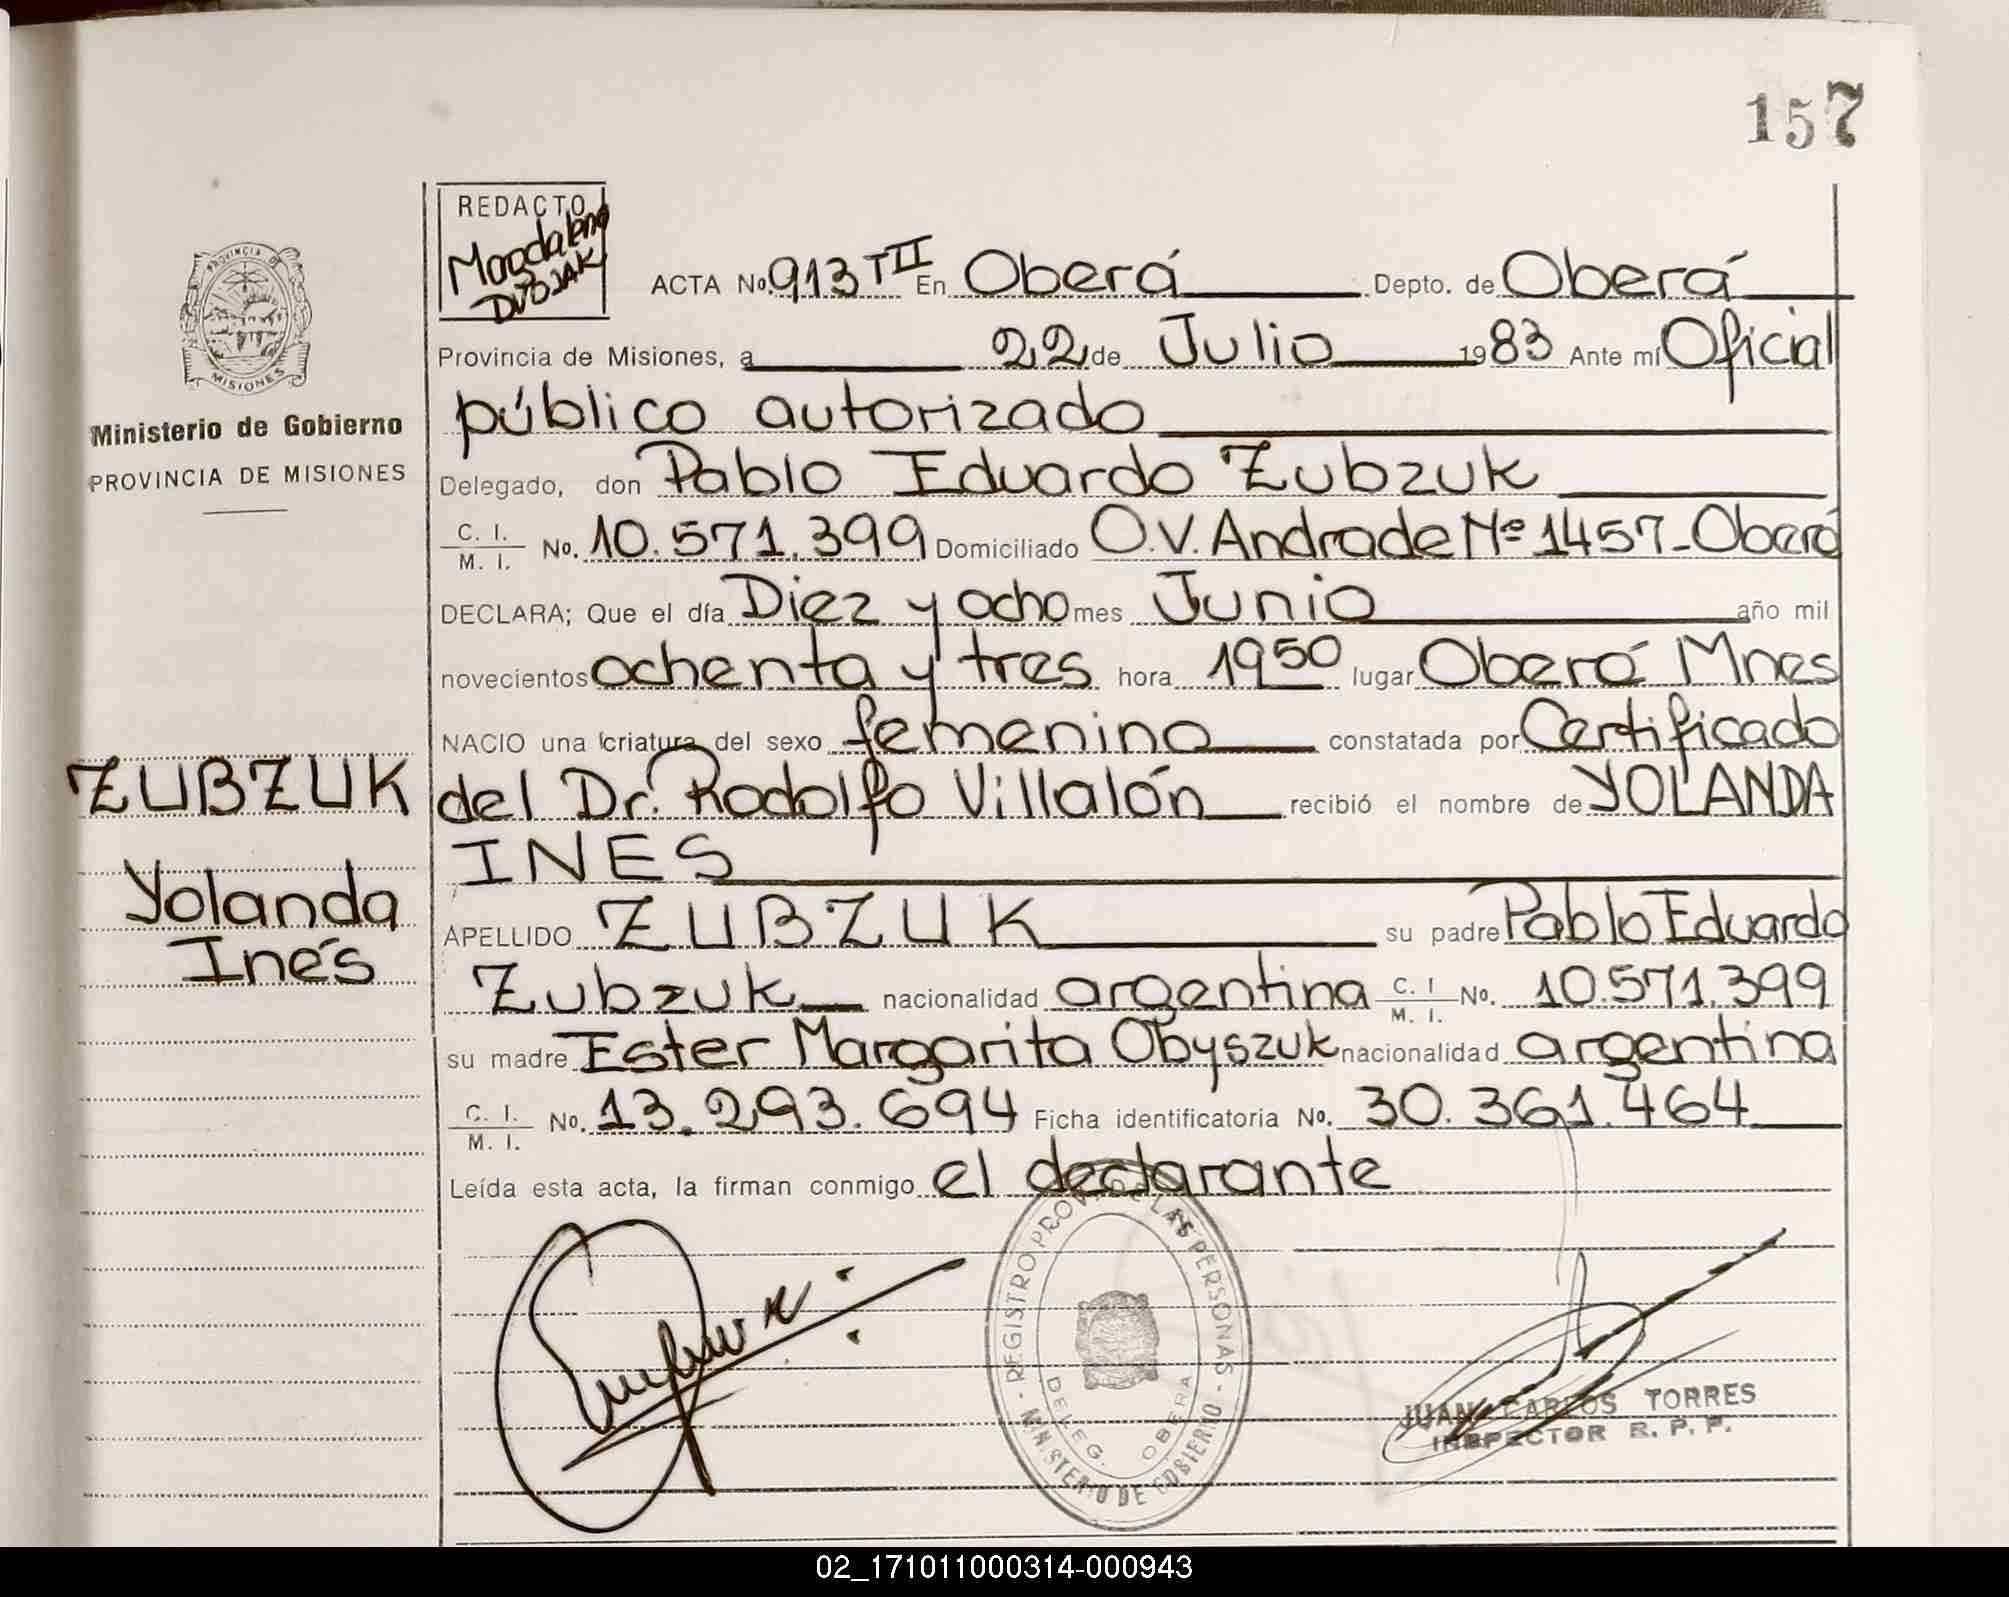 157
REDACTO
Magdalena
DUBJAK
PROVINCIA DE
MISIONES
Ministerio de Gobierno
PROVINCIA DE MISIONES
ZUBZUK
Yolanda
Inés
ACTA No. 913 TII En Oberá Depto. de Oberá
Provincia de Misiones, a 22 de Julio 1983 Ante mí Oficial
público autorizado
Delegado, don Pablo Eduardo Zubzuk
C. I. / M. I. No. 10.571.399 Domiciliado O.V. Andrade Nº 1457-Oberá
DECLARA; Que el día Diez y ocho mes Junio año mil
novecientos ochenta y tres hora 1950 lugar Oberá Mnes
NACIO una criatura del sexo femenino constatada por Certificado
del Dr. Rodolfo Villalón recibió el nombre de YOLANDA
INES
APELLIDO ZUBZUK su padre Pablo Eduardo
Zubzuk nacionalidad argentina C. I / M. I. No. 10.571.399
su madre Ester Margarita Obyszuk nacionalidad argentina
C. I. / M. I. No. 13.293.694 Ficha identificatoria No. 30.361.464
Leída esta acta, la firman conmigo el declarante
REGISTRO PROV. DE LAS PERSONAS
DELEG. OBERA
MINISTERIO DE GOBIERNO
JUAN CARLOS TORRES
INSPECTOR R. P. P.
02_171011000314-000943